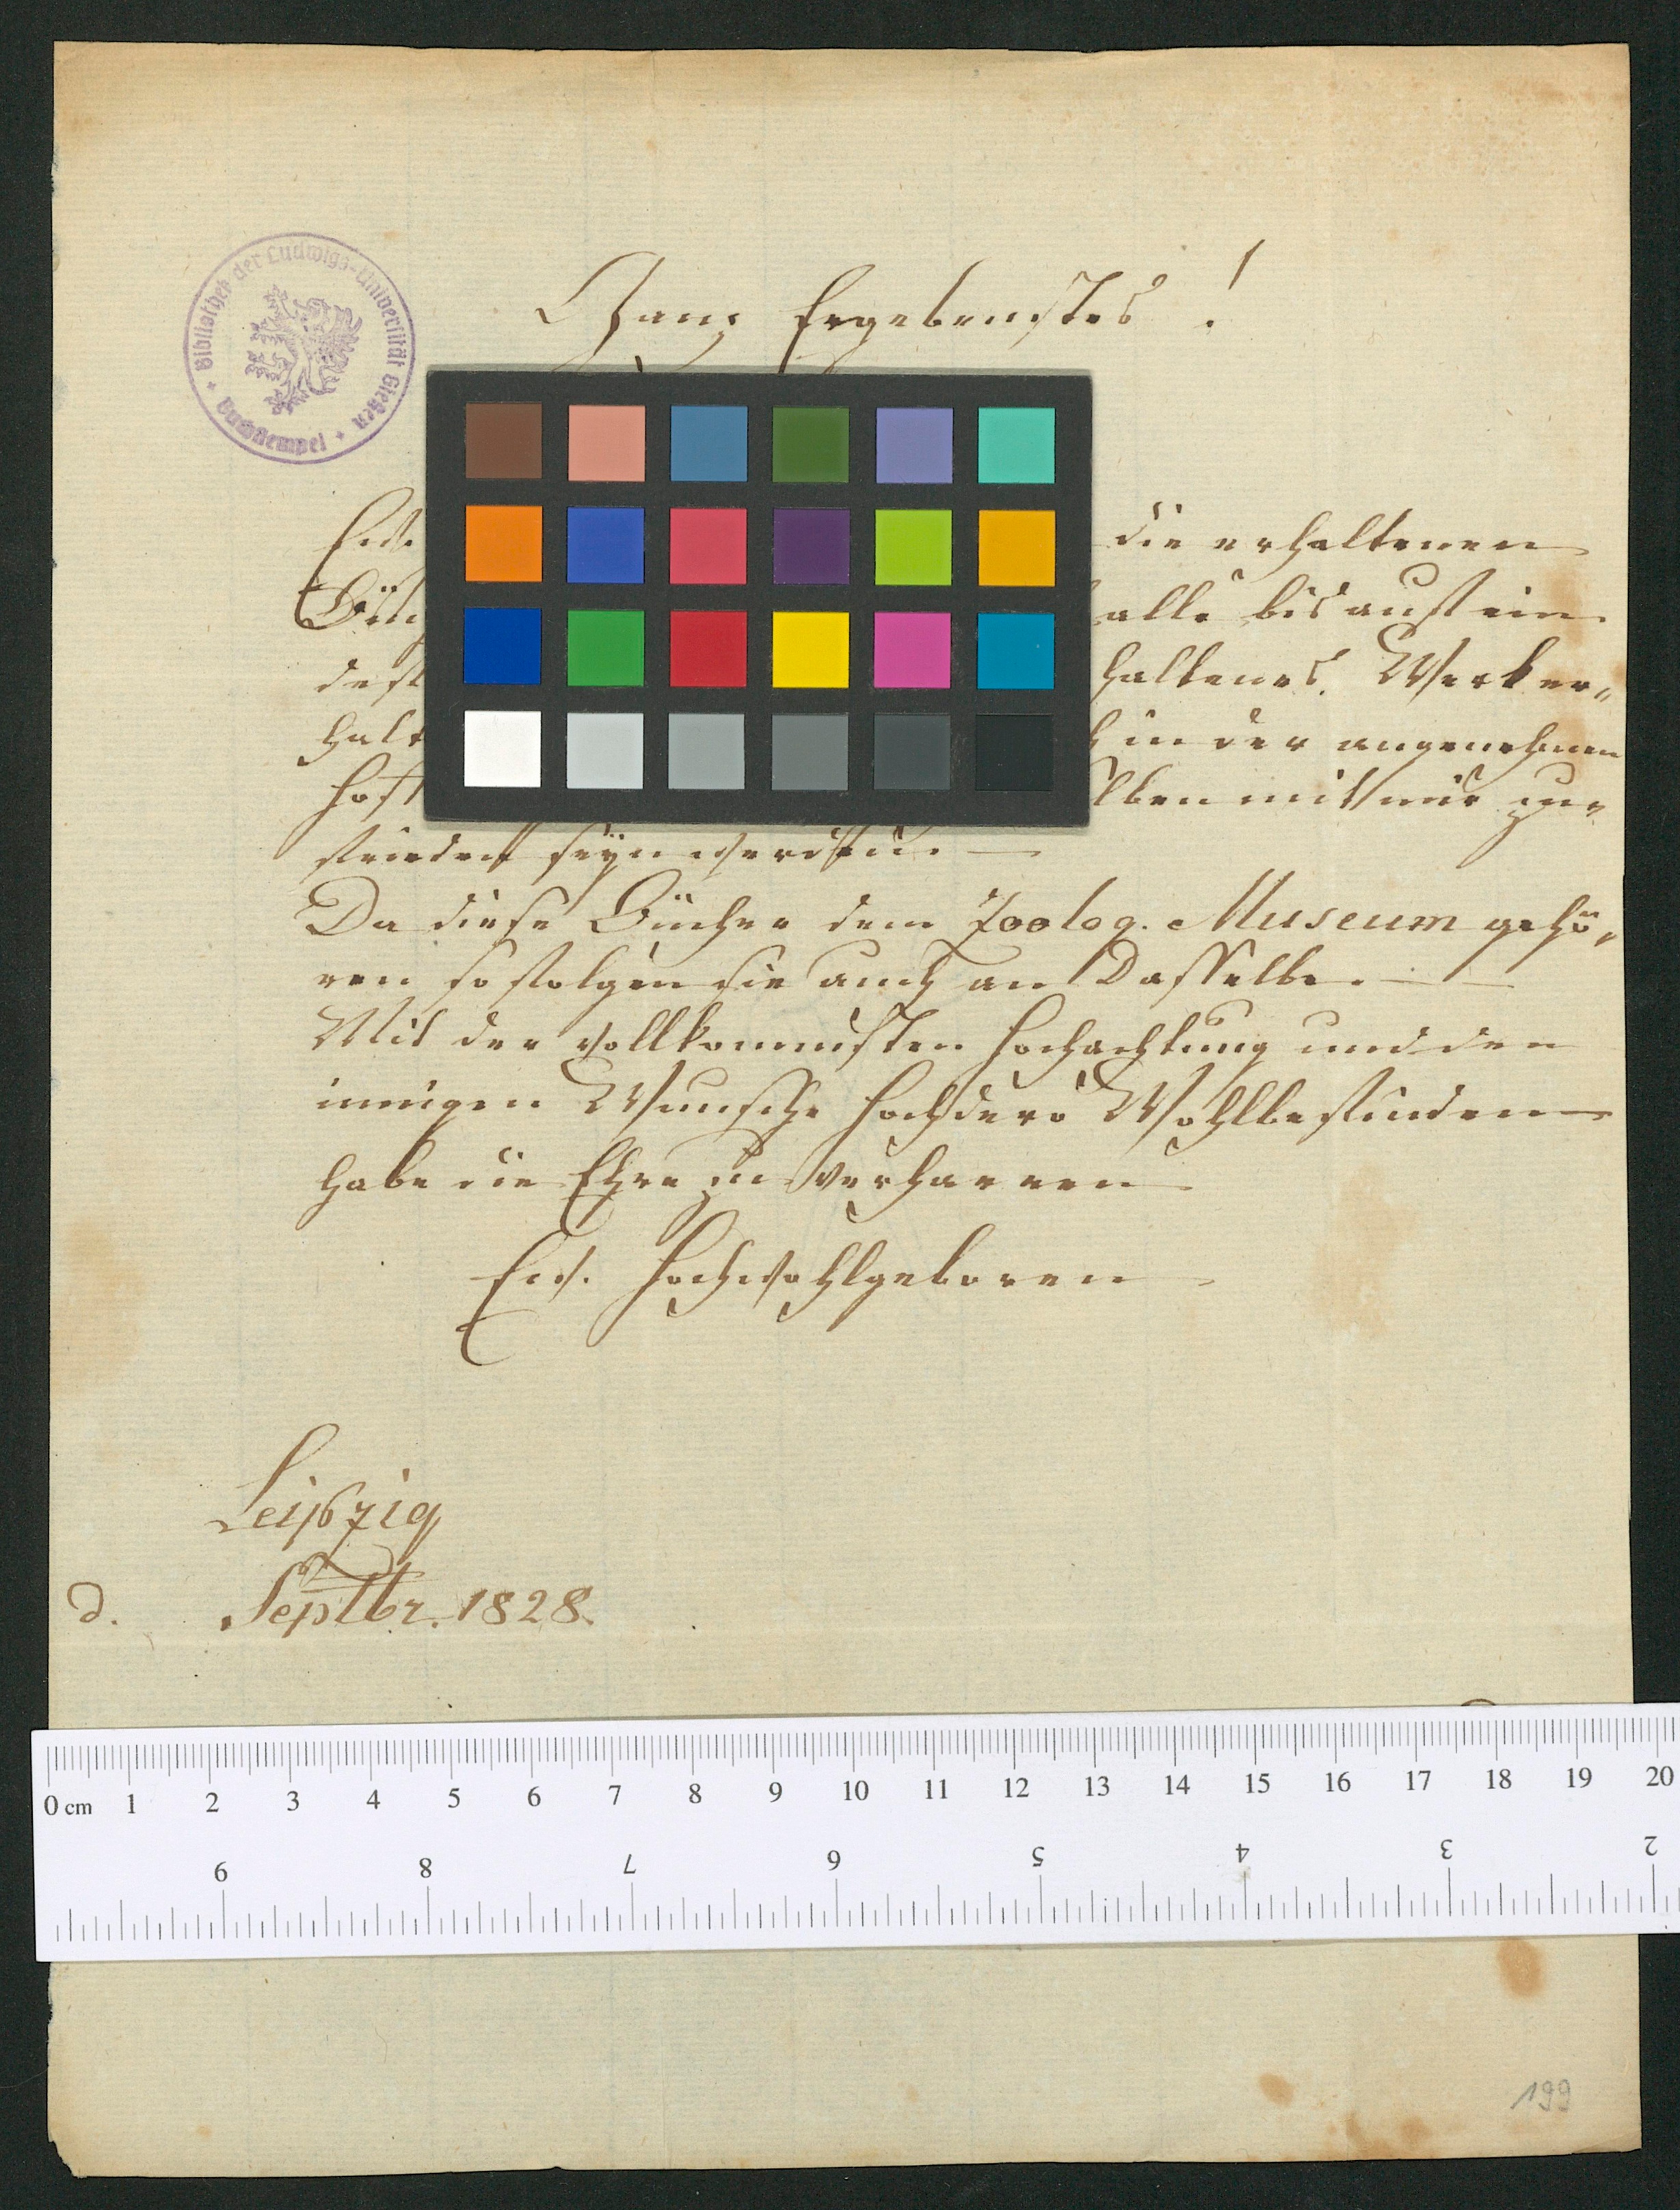 Bibliothek der Ludwigs-Universität Gießen
Buchstempel
Ganz Ergebenstes!
Ew.
die erhaltenen
alle bis auf ein
haltenes Werk er„
halt
in der angenehmen
Hoff
lben mit mir zu„
frieden seyn werden. —
Da diese Bücher dem Zoolog. Museum gehö„
ren so folgen sie auch an Dasselbe. —
Mit der vollkommensten Hochachtung und den
innigen Wunsche Hochdero Wohlbefinden
habe die Ehre zu verharren
Ew. Hochwohlgeboren
Leipzig
d. Septbr. 1828.
0 cm 1 2 3 4 5 6 7 8 9 10 11 12 13 14 15 16 17 18 19 20
9 8 7 6 5 4 3 2
199